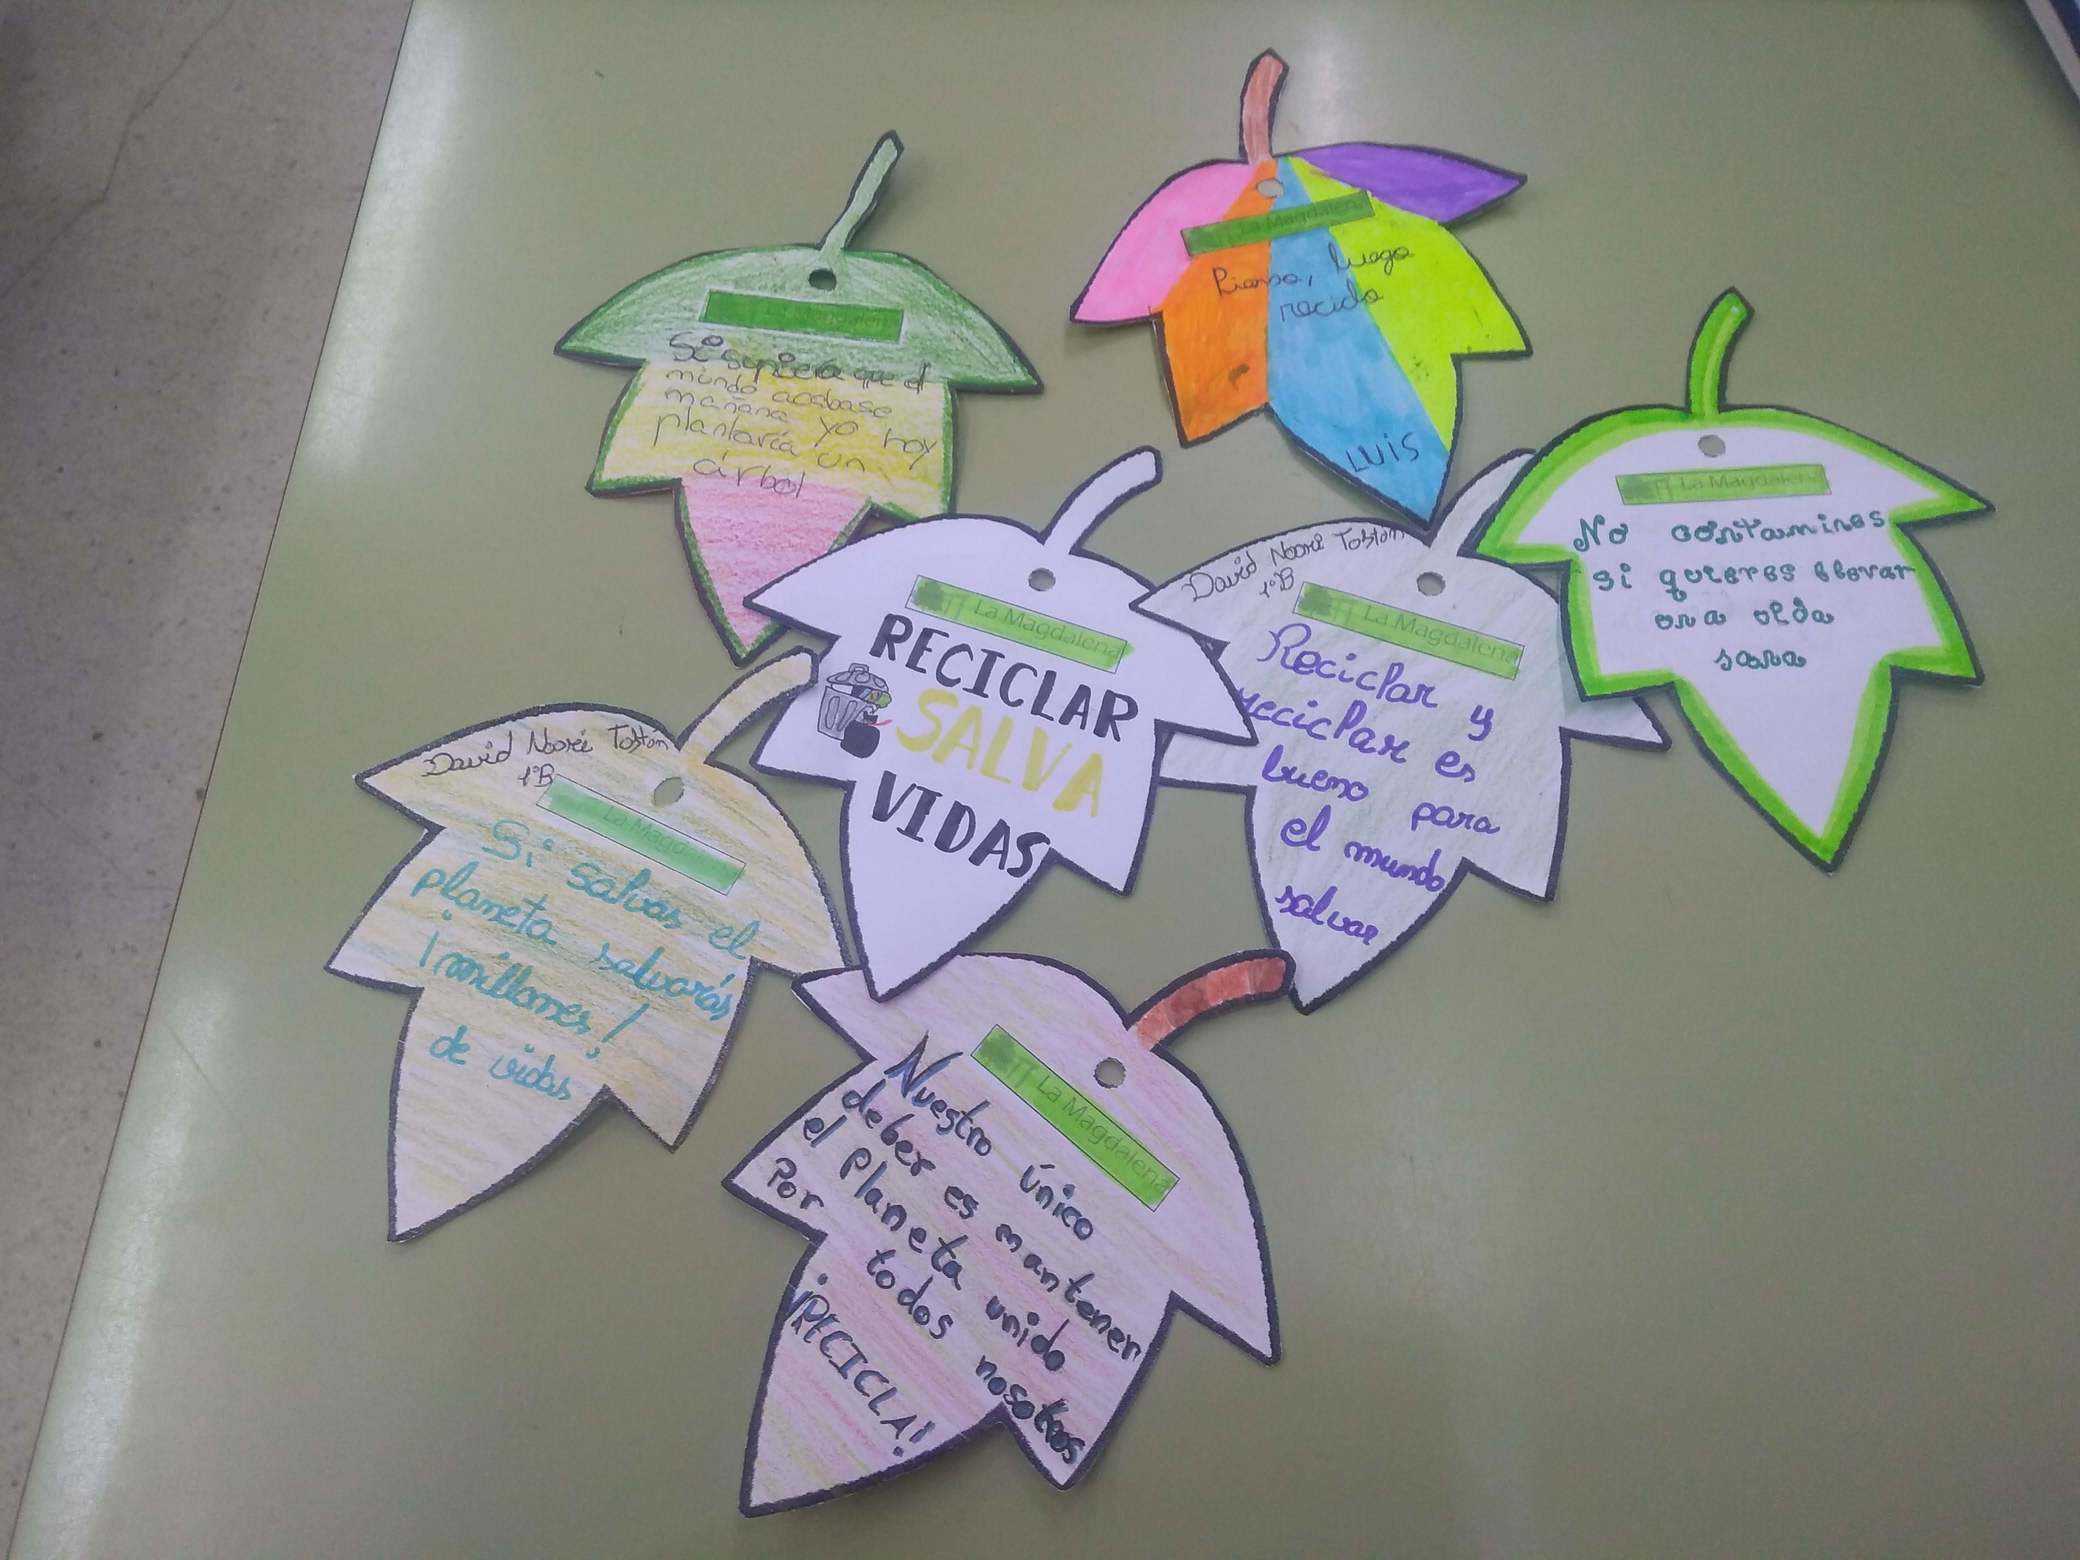 La Magdalena
Piensa, luego
recicla
LUIS
La Magdalena
Si supiera que el
mundo acabase
mañana yo hoy
plantaría un
árbol
La Magdalena
No contamines
si quieres llevar
una vida
sana
La Magdalena
RECICLAR
SALVA
VIDAS
David Noori Tostón
1ºB
La Magdalena
Reciclar y
reciclar es
bueno para
el mundo
salvar
David Noori Tostón
1ºB
La Magdalena
Si salvas el
planeta salvarás
¡millones!
de vidas
La Magdalena
Nuestro único
deber es mantener
el planeta unido
Por todos nosotros
¡RECICLA!